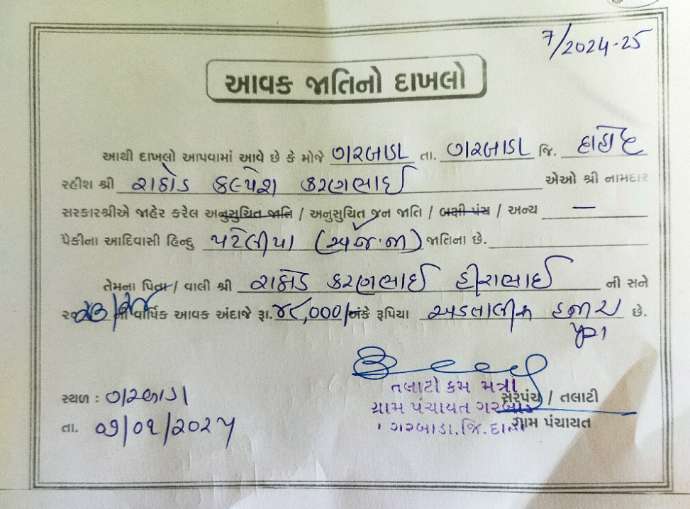 7/2024-25
આવક જાતિનો દાખલો
આથી દાખલો આપવામાં આવે છે કે મોજે ગરબાડા તા. ગરબાડા જિ. દાહોદ
રહીશ શ્રી રાઠોડ કલ્પેશ કરણભાઈ એઓ શ્રી નામદાર
સરકારશ્રીએ જાહેર કરેલ અનુસુચિત જાતિ / અનુસુચિત જન જાતિ / બક્ષી પંચ / અન્ય —
પૈકીના આદિવાસી હિન્દુ પટેલીયા (અ.જ.જા) જાતિના છે.
તેમના પિતા / વાલી શ્રી રાઠોડ કરણભાઈ હીરાભાઈ ની સને
૨૦૨૩/૨૪ ના વાર્ષિક આવક અંદાજે રૂા. ૪૮,000/ અંકે રૂપિયા અડતાલીસ હજાર છે.
પુરા
તલાટી કમ મંત્રી
સરપંચ / તલાટી
સ્થળ : ગરબાડા
ગ્રામ પંચાયત ગરબાડા
ગ્રામ પંચાયત
તા. ૦૭/૦૧/૨૦૨૫
ગરબાડા.જિ.દાહોદ